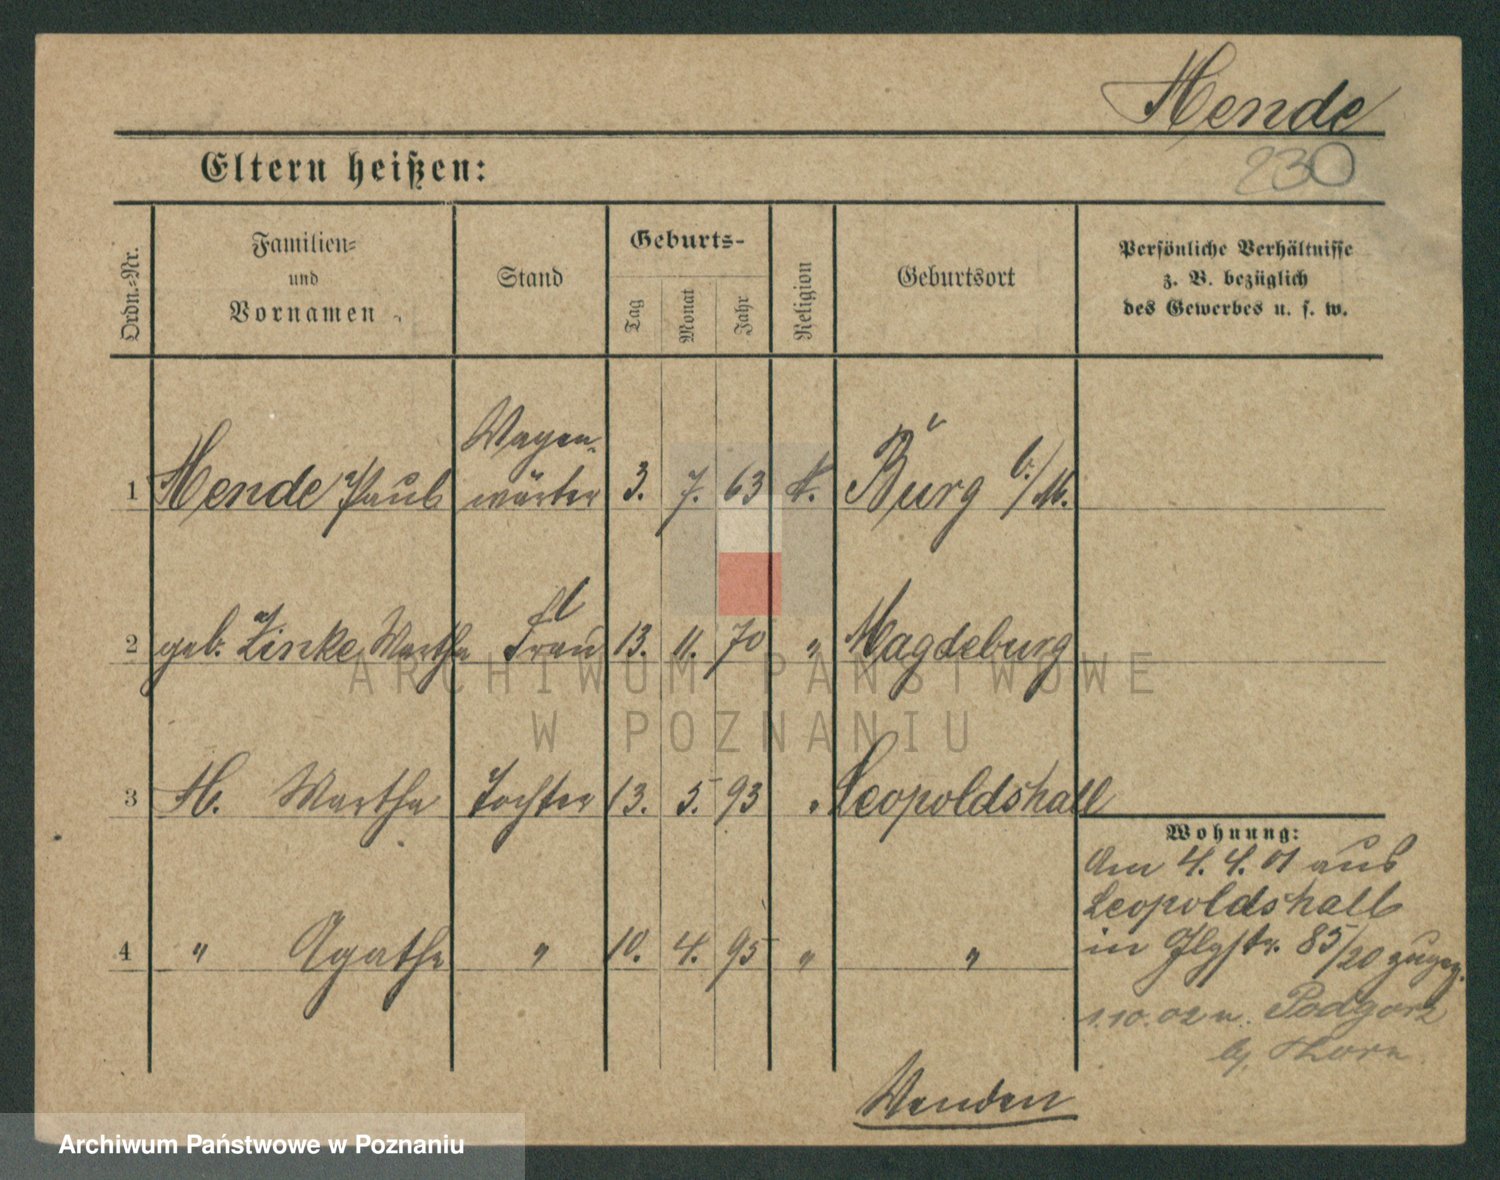 Mende
230
Eltern heißen:
Ordn.-Nr.
Familien-
und
Vornamen
Stand
Geburts-
Tag
Monat
Jahr
Religion
Geburtsort
Persönliche Verhältnisse
z. B. bezüglich
des Gewerbes u. s. w.
1 Mende Paul Wagen-
wärter 3. 7. 63 k. Burg b/M.
2 geb. Zinke Martha Frau 13. 11. 70 " Magdeburg
3 M. Martha Tochter 13. 5. 93 " Leopoldshall
Wohnung:
Am 4. 4. 01 aus
Leopoldshall
in 85/20 zugez.
4 " Agathe " 10. 4. 95 " "
1.10.02 n. Podgorz
b/ Thorn
Wenden
ARCHIWUM PAŃSTWOWE
W POZNANIU
Archiwum Państwowe w Poznaniu